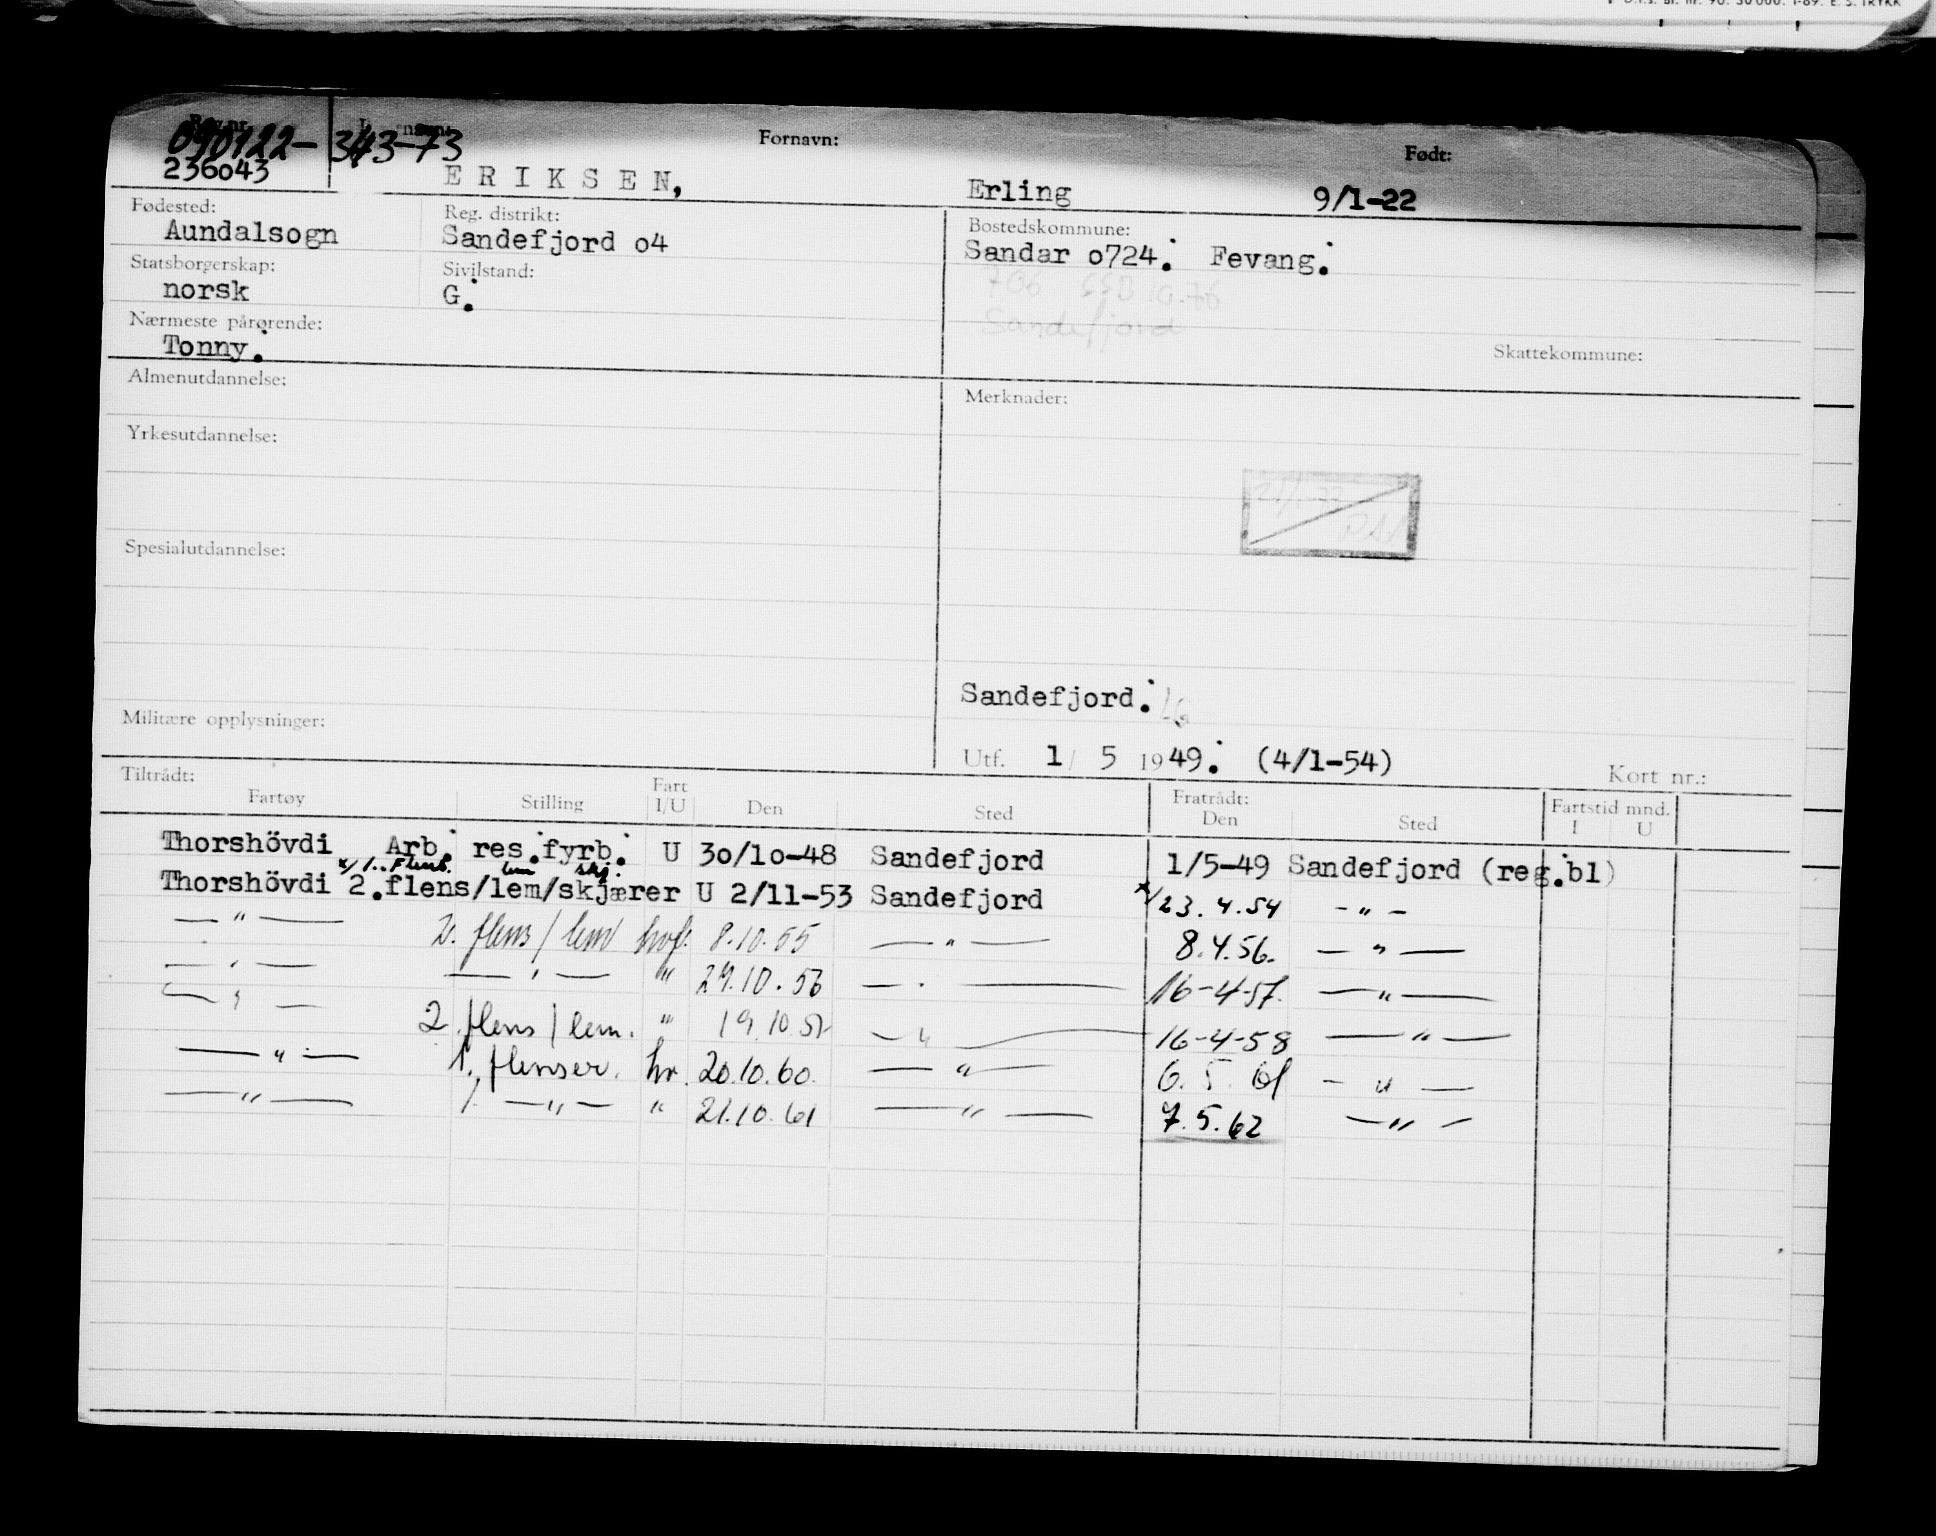 D.f.s. Bl. nr. 90. 30 000. 1-69. E. S. TRYKK
Reg.nr.
090122- 343-73
Fornavn:
Født:
236043
ERIKSEN, Erling 9/1-22
Fødested: Reg. distrikt: Bostedskommune:
Aundalsogn Sandefjord o4 Sandar o724. Fevang.
Statsborgerskap: Sivilstand:
norsk G.
706 SSB 10.76
Sandefjord
Nærmeste pårørende:
Tonny.
Skattekommune:
Almenutdannelse: Merknader:
Yrkesutdannelse:
Spesialutdannelse:
Sandefjord.
Militære opplysninger:
Utf. 1/ 5 1949. (4/1-54)
Kort nr.:
Tiltrådt: Fratrådt: Fartstid mnd.
Fartøy Stilling Fart I/U Den Sted Den Sted I U
Thorshövdi Arb. res.fyrb. U 30/10-48 Sandefjord 1/5-49 Sandefjord (reg.bl)
x/1. Flens. lem skj.
Thorshövdi 2.flens/lem/skjærer U 2/11-53 Sandefjord x/23.4.54 - " -
— " — 2. flens/lem hvf. 8.10.55 — " — 8.4.56. — " —
— " — — " — " 29.10.56 — " — 16-4-57. — " —
— " — 2. flens/lem. " 19.10.57 — " — 16-4-58 — " —
— " — 1. flenser. hv. 20.10.60. — " — 6.5.61 — " —
— " — 1. — " — " 21.10.61 — " — 7.5.62 — " —